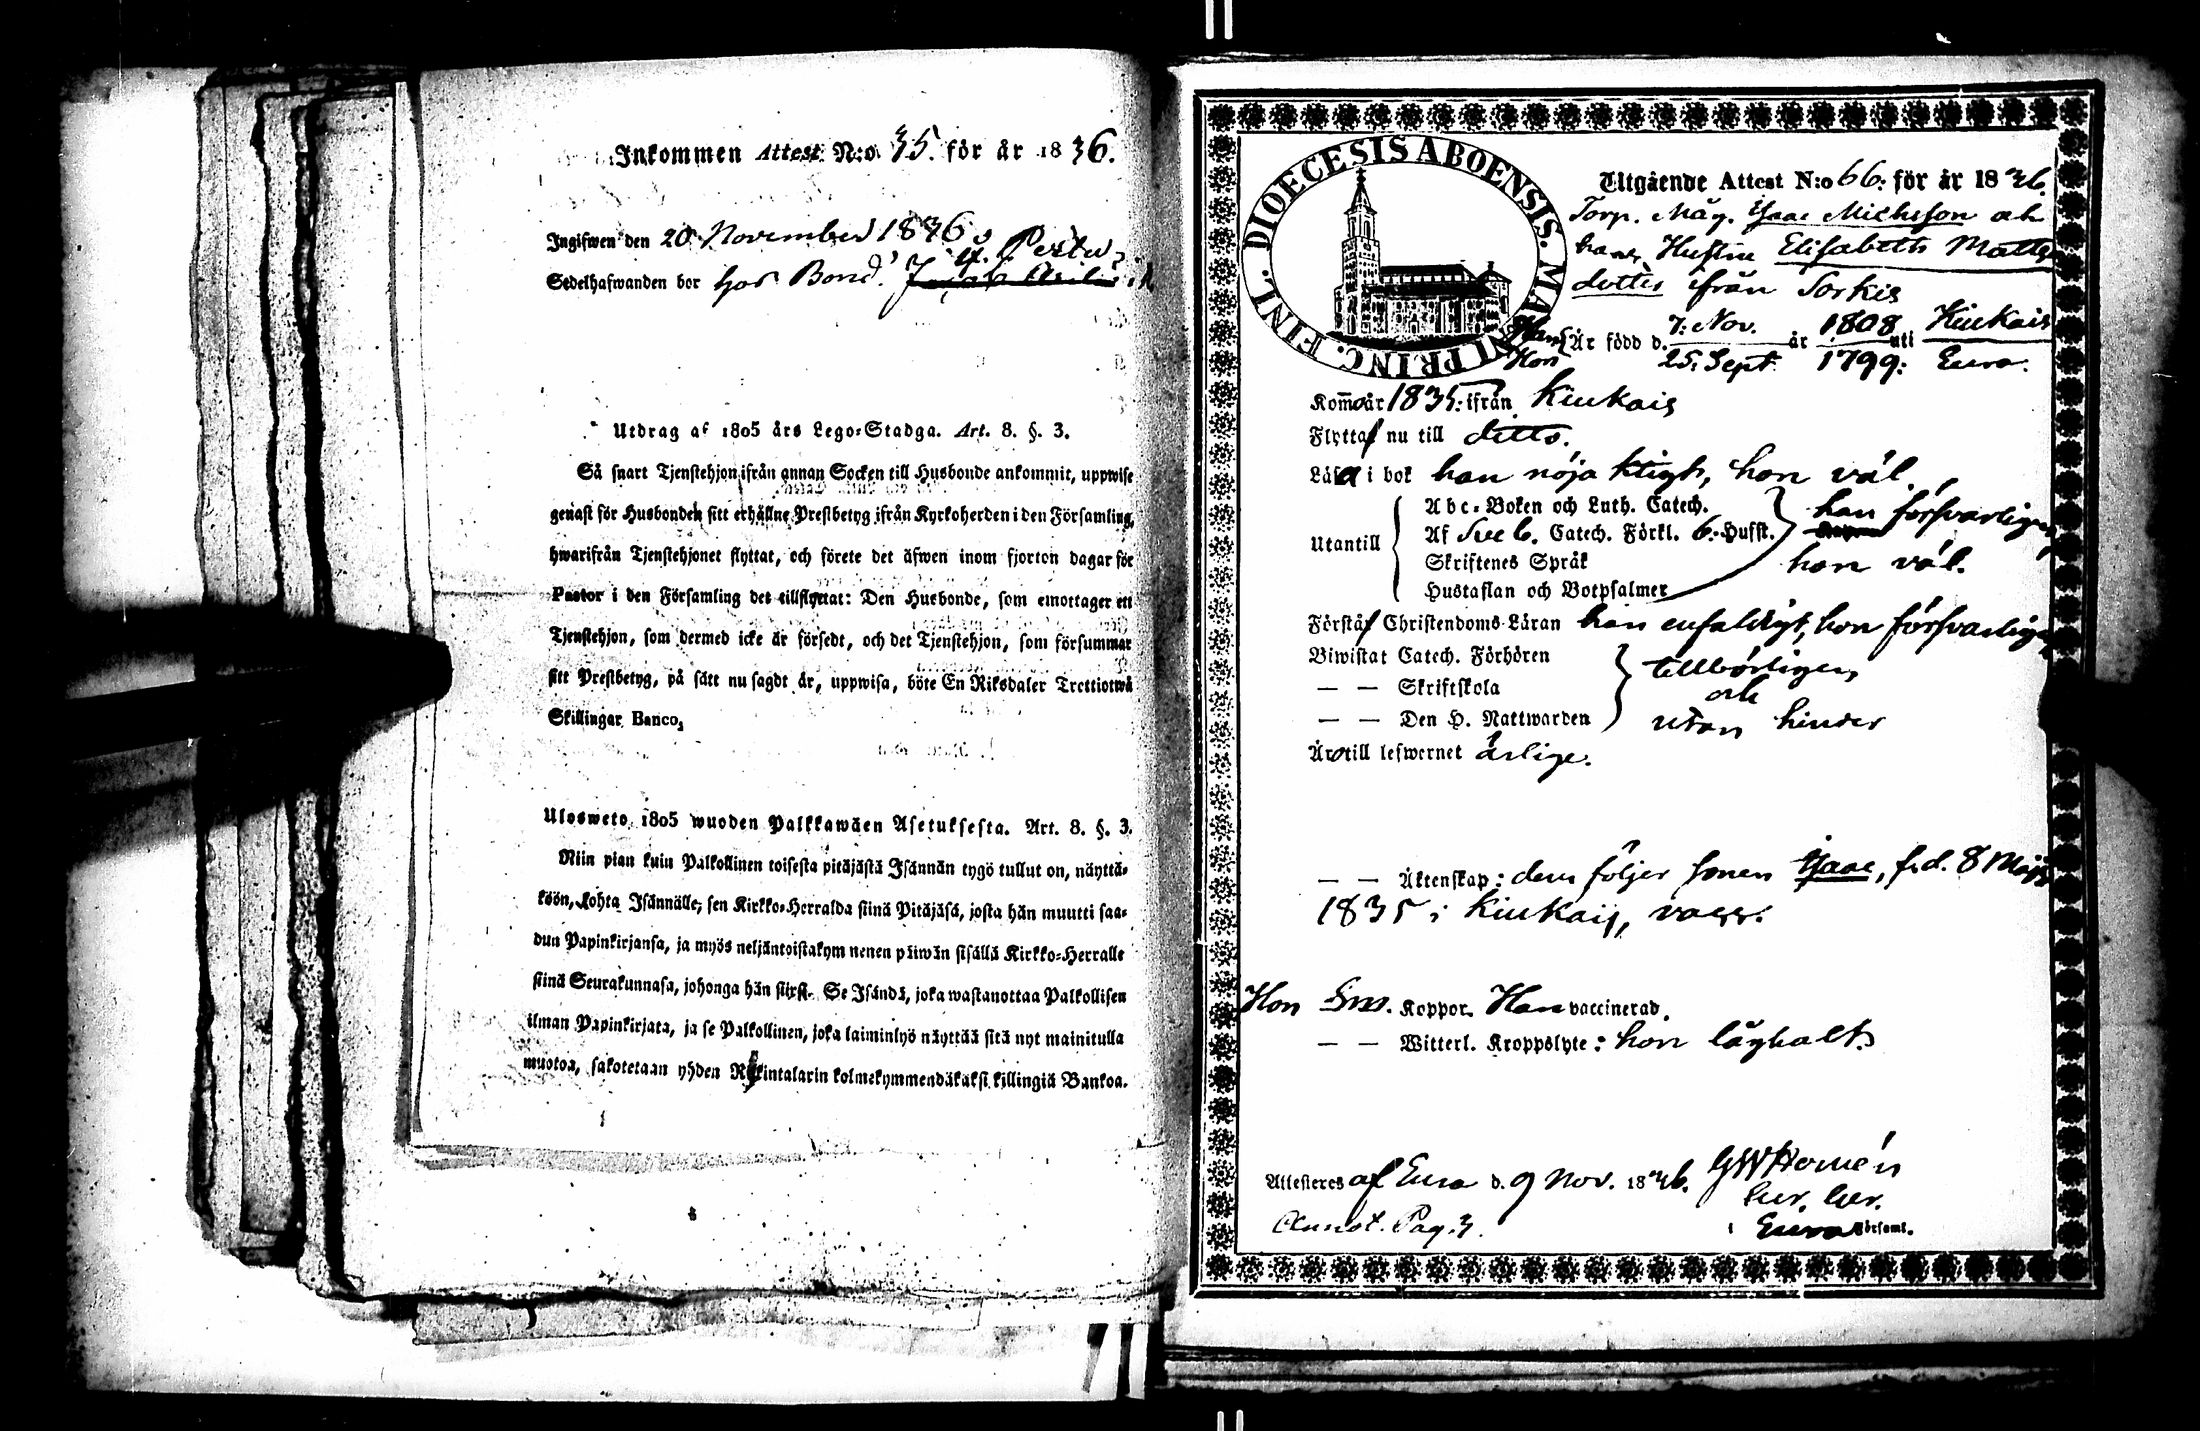 Inkommen Attest N:o 35. för år 1836.
Ingifwen den 20 November 1836
Sedelhafwanden bor hos Bond.
Utdrag af 1805 års Lego-Stadga. Art. 8. §. 3.
Så snart Tjenstehjon ifrån annan Socken till Husbonde ankommit, uppwise
genast för Husbonden sitt erhållne Prestbetyg ifrån Kyrkoherden i den Församling,
hwarifrån Tjenstehjonet flyttat, och förete det äfwen inom fjorton dagar för
Pastor i den Församling det tillflyttat: Den Husbonde, som emottager ett
Tjenstehjon, som dermed icke är försedt, och det Tjenstehjon, som försummar
sitt Prestbetyg, på sätt nu sagdt är, uppwisa, böte En Riksdaler Trettiotwå
Skillingar Banco.
Ulosweto 1805 wuoden Palkkawäen Asetuksesta. Art. 8. §. 3.
Niin pian kuin Palkollinen toisesta pitäjästä Isännän tygö tullut on, näyttä-
köön, kohta Isännälle, sen Kirkko-Herralda siinä Pitäjäsä, josta hän muutti saa-
dun Papinkirjansa, ja myös neljäntoistakym nenen päiwän sisällä Kirkko-Herralle
siinä Seurakunnasa, johonga hän siirsi. Se Isändä, joka wastanottaa Palkollisen
ilman Papinkirjata, ja se Palkollinen, joka laiminlyö näyttää sitä nyt mainitulla
muotoa, sakotetaan yhden Riikintalarin kolmekymmendäkaksi killingiä Bankoa.
DIOECESIS ABOENSIS. MAGNI PRINC. FINL.
Utgående Attest N:o 66. för år 1836.
Torp. Måg. Isaac Michelsson och
hans Hustru Elisabeth Matts
dotter ifrån Sorkis
Han Hon Är född d. 7. Nov. år 1808 uti Kiukais
25. Sept. 1799. Eura.
Kommo år 1835. ifrån Kiukais
Flytta nu till ditto.
Läsa i bok han nöjaktigt, hon väl.
Abc-Boken och Luth. Catech.
Utantill Af Sveb. Catech. Förkl. 6. Hufst. han försvarligen
Skriftenes Språk hon väl.
Hustaflan och Botpsalmer
Förstå Christendoms Läran han enfaldigt, hon försvarligt
Biwistat Catech. Förhören tillbörligen
— — Skriftskola och
— — Den H. Nattwarden utan hinder
Äro till lefwernet ärlige.
— — Äktenskap: dem följer sonen Isaac, född. 8 Maji
1835 i Kiukais, vacc.
Hon Sm. Koppor. Han vaccinerad.
— — Witterl. Kroppslyte: hon låghalt.
Attesteres af Eura d. 9 Nov. 1836. GW Homén
Annot. Pag. 3.
i Eura Församl.